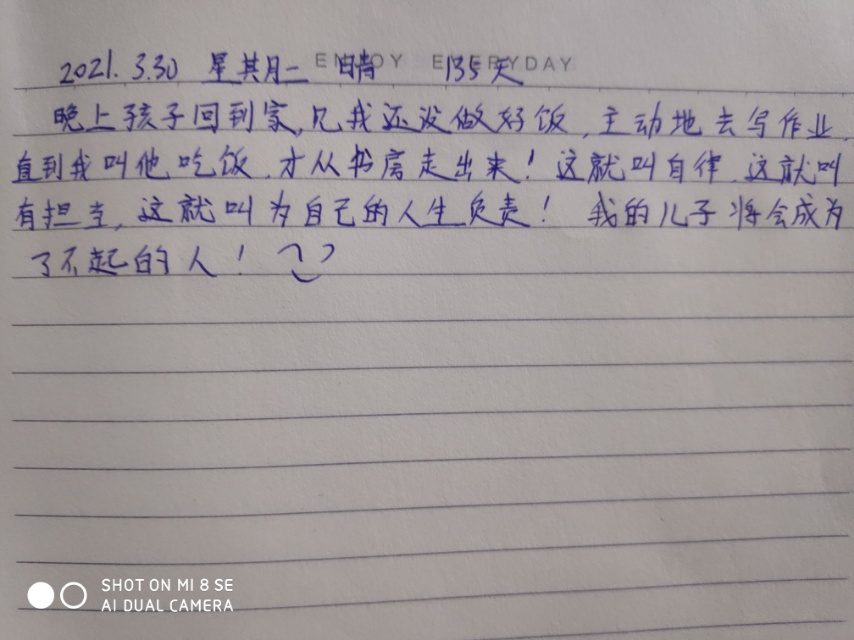 ENJOY EVERYDAY
2021. 3.30 星期二 晴 135天
晚上孩子回到家,见我还没做好饭,主动地去写作业
直到我叫他吃饭,才从书房走出来!这就叫自律,这就叫
有担当,这就叫为自己的人生负责! 我的儿子将会成为
了不起的人!
SHOT ON MI 8 SE
AI DUAL CAMERA